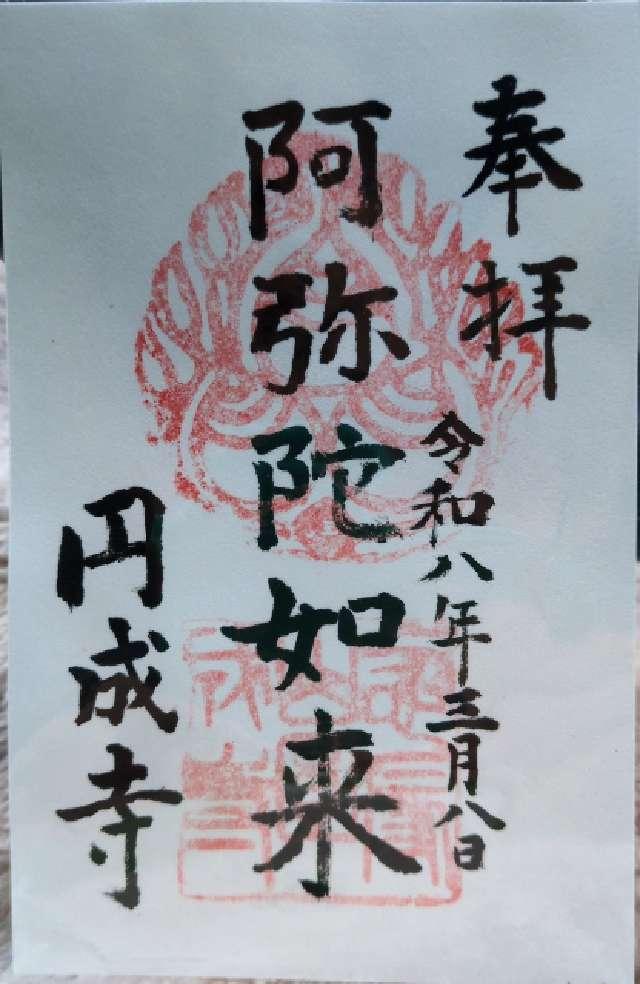 奉拝
令和八年三月八日
阿弥陀如来
円成寺